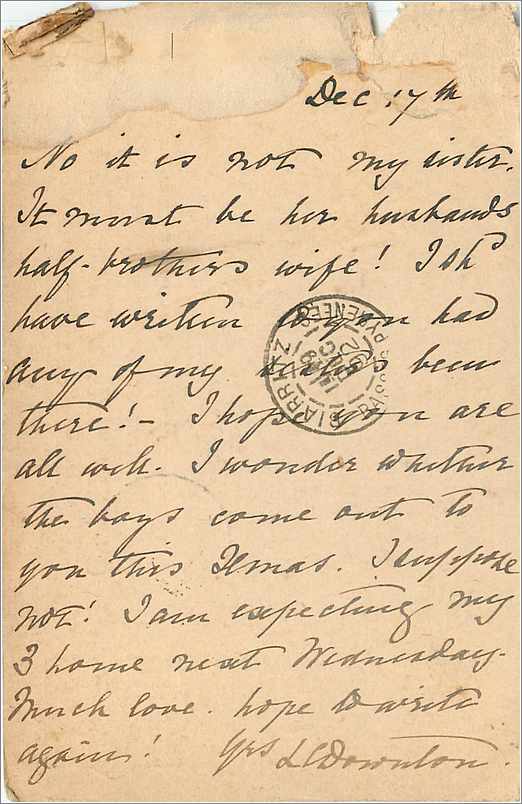 Dec 17th
No it is not my sister.
It must be her husbands
half-brothers wife! I shd
have written to you had
any of my sisters been
there!- I hope you are
all well. I wonder whether
the boys come out to
you this Xmas. I suppose
not! I am expecting my
3 home next Wednesday.
Much love. hope to write
again! Yrs LCDownton.
BIARRITZ
BASSES PYRENEES